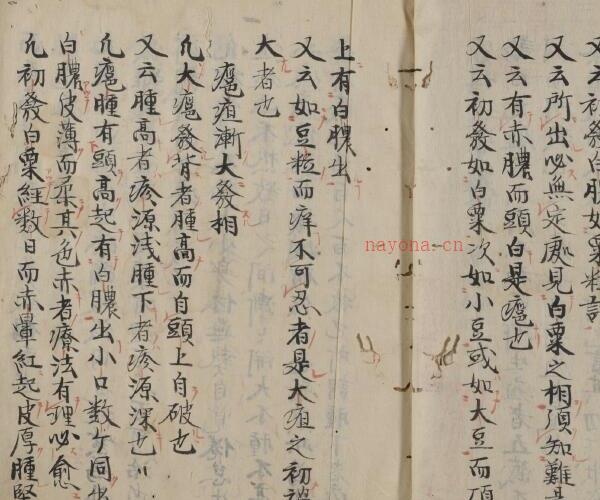 又云初發白膿如粟粒
又云所出必無定處見白粟之相須知難
又云有赤膿而頭白是癰也
又云初發如白粟次如小豆或如大豆而頂
上有白膿出
又云如豆粒而痒不可忍者是大疽之初
大者也
癰疽漸大發相
凡大癰發背者腫高而自頭上自破也
又云腫高者疼源浅腫下者疼源深也
凡癰腫有頭高起有白膿出小口数ケ同出
白膿皮薄而柔其色赤者療法有理必愈
凡初發白粟経数日而赤暈紅起皮厚腫堅
nayona·cn